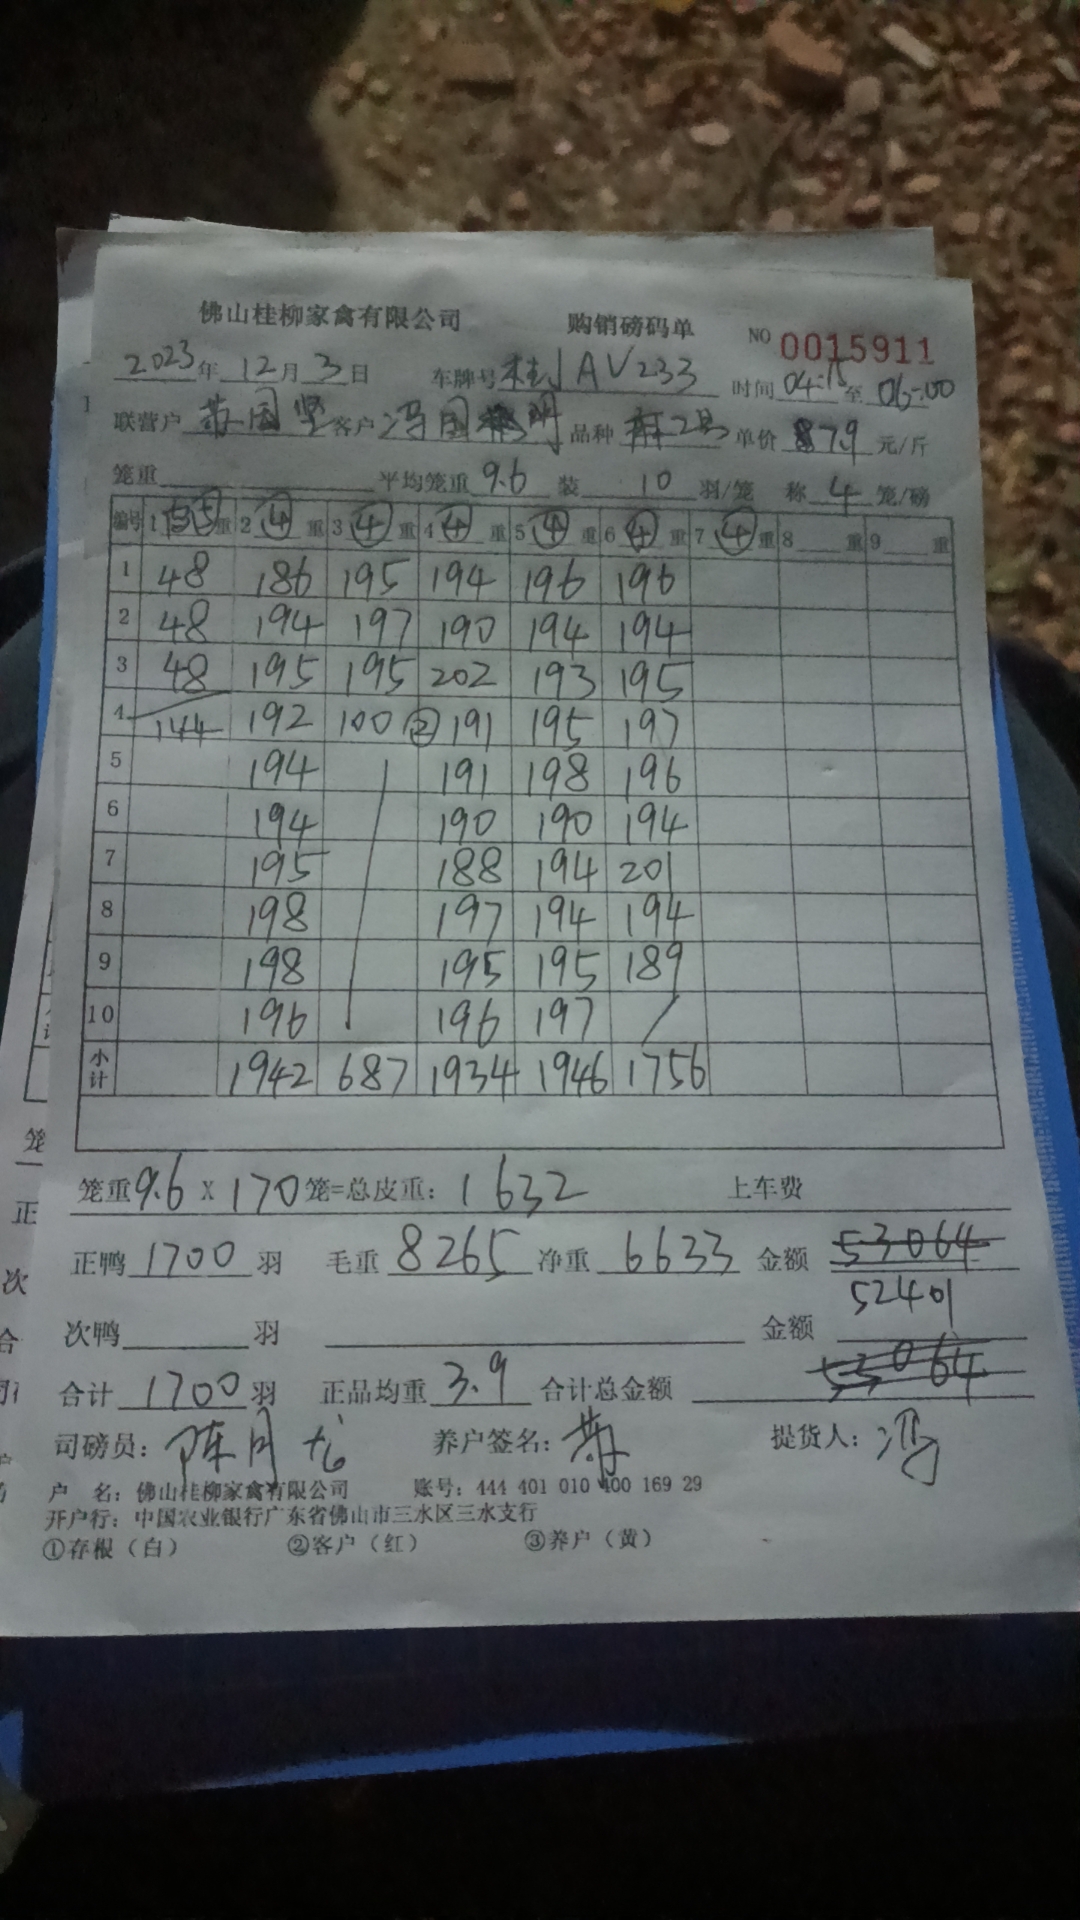 佛山桂柳家禽有限公司 购销磅码单 NO 0015911
2023年 12月 3日 车牌号 桂J AV233 时间 04:15 至 06:00
联营户 国坚 客户 冯国明 品种 2号 单价 7.9 元/斤
笼重 平均笼重 9.6 装 10 羽/笼 称 4 笼/磅
编号 1 5 重 2 ④ 重 3 ④ 重 4 ④ 重 5 ④ 重 6 ④ 重 7 ④ 重 8 重 9 重
1 48 186 195 194 196 196
2 48 194 197 190 194 194
3 48 195 195 202 193 195
4 144 192 100 ② 191 195 197
5 194 191 198 196
6 194 190 190 194
7 195 188 194 201
8 198 197 194 194
9 198 195 195 189
10 196 196 197
小计 1942 687 1934 1946 1756
笼重 9.6 X 170 笼=总皮重: 1632 上车费
正鸭 1700 羽 毛重 8265 净重 6633 金额 53064
52401
次鸭 羽 金额
合计 1700 羽 正品均重 3.9 合计总金额 53064
司磅员: 陈月龙 养户签名: 提货人: 冯
户 名: 佛山桂柳家禽有限公司 账号: 444 401 010 400 169 29
开户行: 中国农业银行广东省佛山市三水区三水支行
①存根(白) ②客户(红) ③养户(黄)